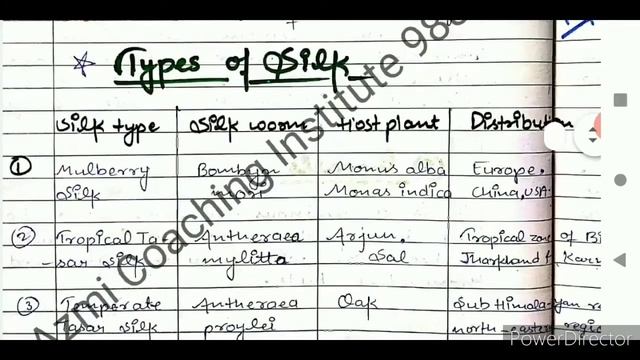 * Types of Silk
Silk type Silk worm Host plant Distribution
① Mulberry Bombyx Monus alba Europe.
Silk mori Monas indica China, USA.
② Tropical Ta Antheraea Arjun. Tropical zone of Bi
- sar silk mylitta Sal Jharkhand
③ Temperate Antheraea Oak Sub Himala-yan re
Tasar silk proylei north-eastern regio
Azmi Coaching Institute 98
PowerDirector